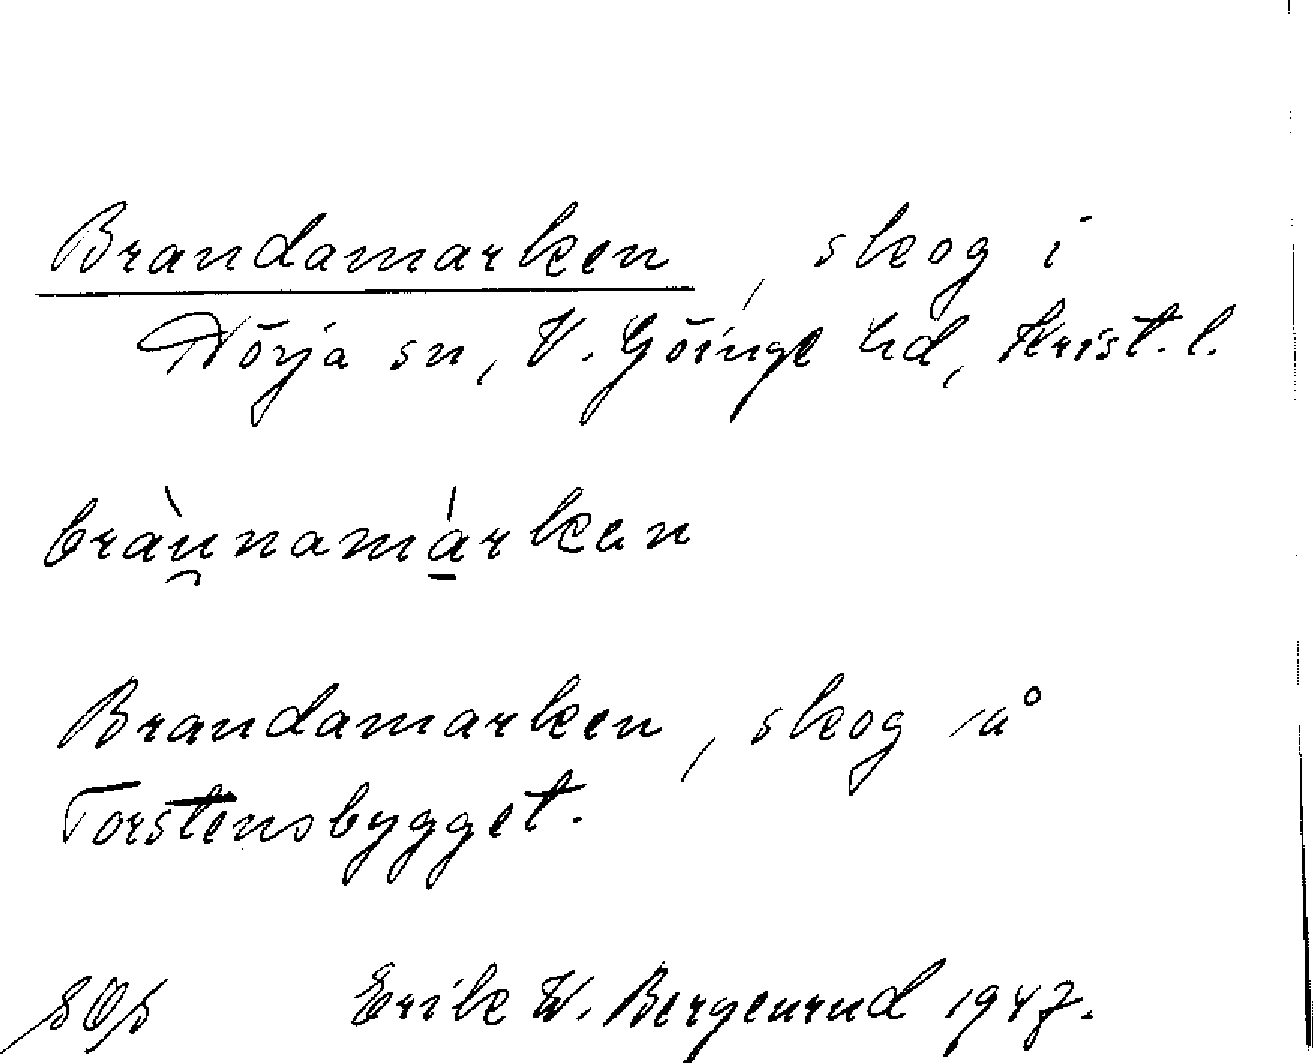 Brandamarken, skog i
Nörja sn, V. Göinge hd, Krist. l.
brànnamárken
Brandamarken, skog på
Torstensbygget.
Erik W. Bergenrud 1947.